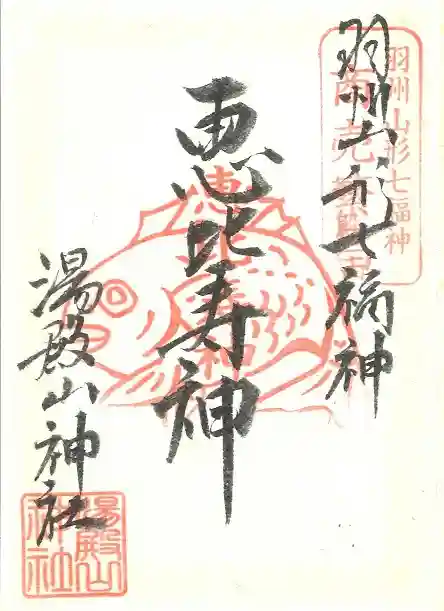 羽州山形七福神
羽州山形七福神
商売繁盛
恵比寿神
湯殿山神社
湯殿山
神社